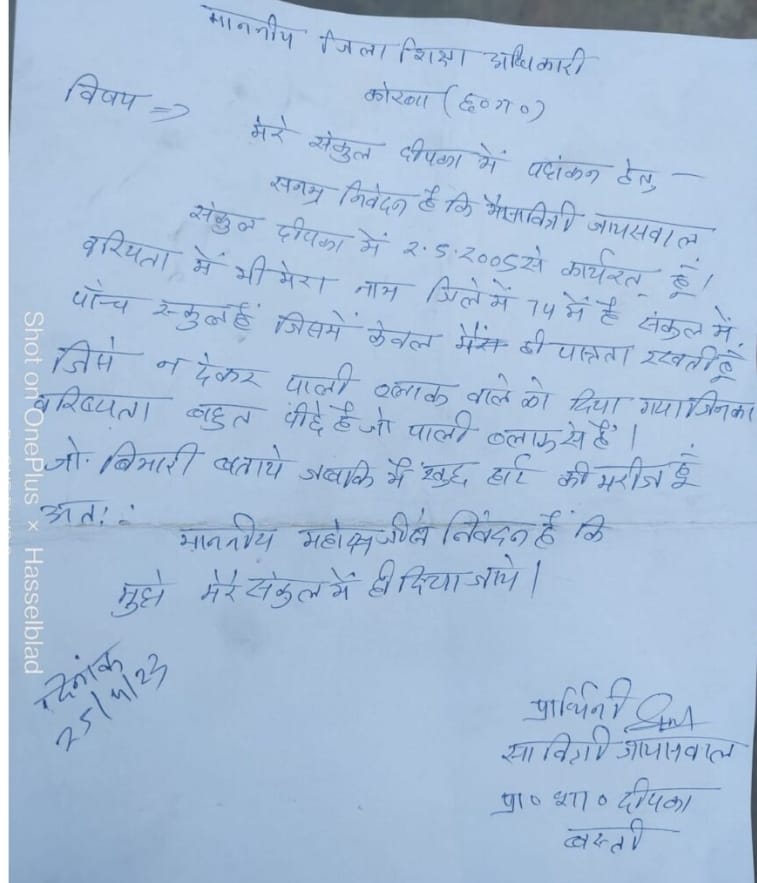 माननीय जिला शिक्षा अधिकारी
कोरबा (छ०ग०)
विषय =>
मेरे संकुल दीपका में पदांकन हेतु –
सनम्र निवेदन है कि मैं सावित्री जायसवाल
संकुल दीपका में 2.5.2005 से कार्यरत हूँ।
वरियता में भी मेरा नाम जिले में 74 में है संकुल में
पाँच स्कुल हैं जिसमें केवल मैं ही पात्रता रखती हूँ
जिसे न देकर पाली ब्लाक वाले को दिया गया जिनका
वरिष्यता बहुत पीछे है जो पाली ब्लाक से हैं।
जो बिमारी बताये जबकि मैं खुद हार्ट की मरीज हूँ
अतः:
माननीय महोदय जी से निवेदन है कि
मुझे मेरे संकुल में ही दिया जाये।
दिनांक
25/4/23
प्रार्थिनी
सावित्री जायसवाल
प्रा० शा० दीपका
बस्ती
Shot on OnePlus × Hasselblad